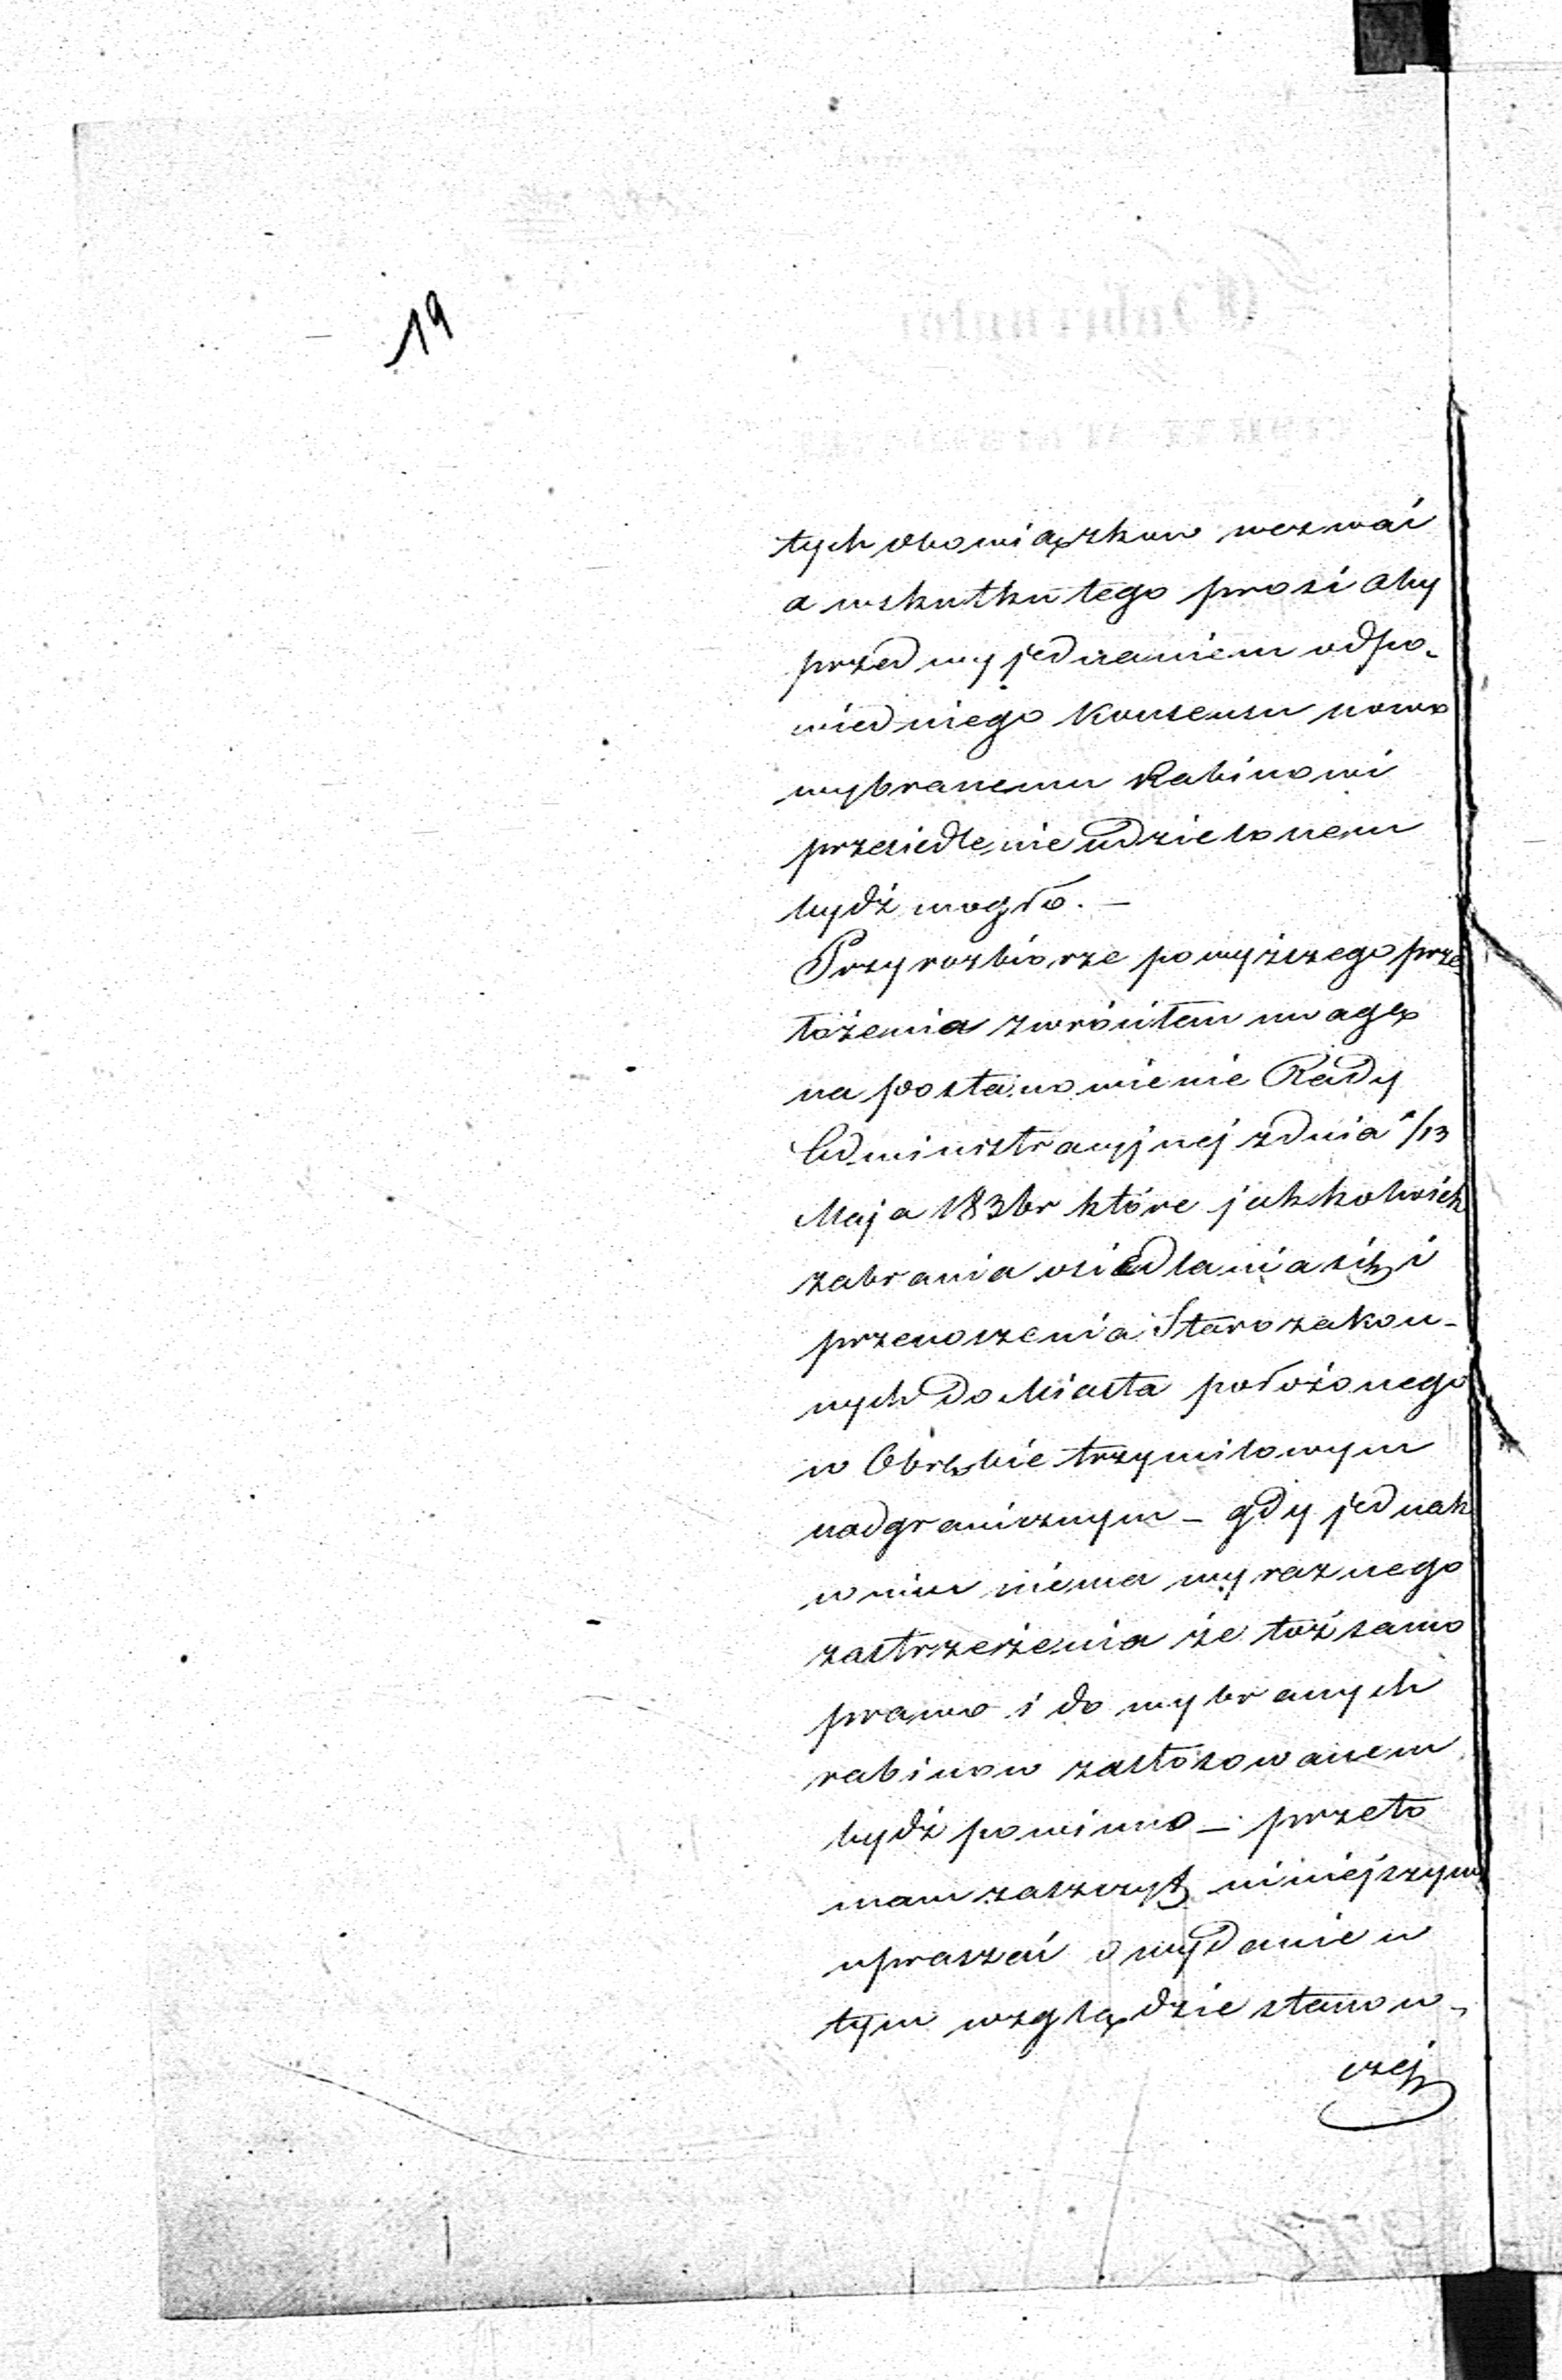 19
tych obowiązkow wezwać
a wskutku tego prosi aby
przed wyjednaniem odpo-
wiedniego Konsensu nowo
wybranemu Rabinowi
przesiedlenie udzielonem
bydź mogło. —
Przy rozbiorze powyższego prze
łożenia zwróciłem uwagę
na postanowienie Rady
Administracyjnej z dnia 1/13
Maja 1836r które jakkolwiek
zabrania osiedlania się i
przenoszenia Starozakon-
nych do Miasta położonego
w Obrębie trzymilowym
nadgranicznym — gdy jednak
w nim niema wyraznego
zastrzeżenia że toż samo
prawo i do wybranych
rabinow zastosowanem
bydź powinno — przeto
mam zaszczyt niniejszym
upraszać o wydanie w
tym względzie stanow-
czej